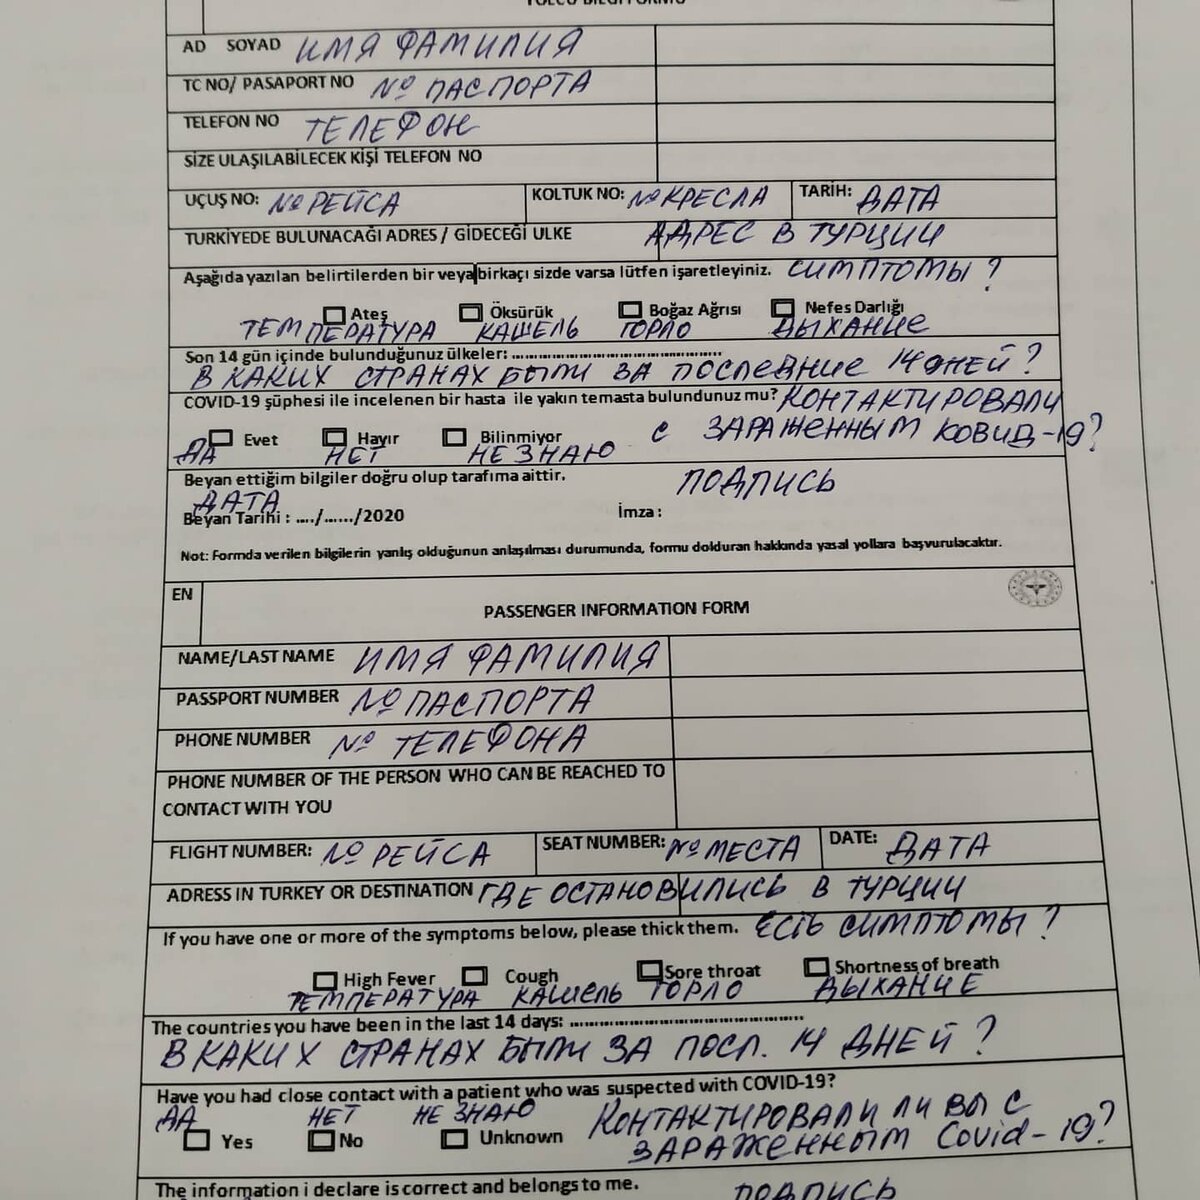 YOLCU BİLGİ FORMU
AD SOYAD ИМЯ ФАМИЛИЯ
TC NO/ PASAPORT NO № ПАСПОРТА
TELEFON NO ТЕЛЕФОН
SİZE ULAŞILABİLECEK KİŞİ TELEFON NO
UÇUŞ NO: № РЕЙСА KOLTUK NO: № КРЕСЛА TARİH: ДАТА
TURKIYEDE BULUNACAĞI ADRES / GİDECEĞİ ULKE АДРЕС В ТУРЦИИ
Aşağıda yazılan belirtilerden bir veya birkaçı sizde varsa lütfen işaretleyiniz. СИМПТОМЫ?
Ateş Öksürük Boğaz Ağrısı Nefes Darlığı
ТЕМПЕРАТУРА КАШЕЛЬ ГОРЛО ДЫХАНИЕ
Son 14 gün içinde bulunduğunuz ülkeler: ......................................................
В КАКИХ СТРАНАХ БЫЛИ ЗА ПОСЛЕДНИЕ 14 ДНЕЙ?
COVID-19 şüphesi ile incelenen bir hasta ile yakın temasta bulundunuz mu? КОНТАКТИРОВАЛИ
Evet Hayır Bilinmiyor С ЗАРАЖЕННЫМ КОВИД-19?
ДА НЕТ НЕ ЗНАЮ
Beyan ettiğim bilgiler doğru olup tarafıma aittir. ПОДПИСЬ
ДАТА
Beyan Tarihi : ..../....../2020 İmza :
Not: Formda verilen bilgilerin yanlış olduğunun anlaşılması durumunda, formu dolduran hakkında yasal yollara başvurulacaktır.
EN
PASSENGER INFORMATION FORM
NAME/LAST NAME ИМЯ ФАМИЛИЯ
PASSPORT NUMBER № ПАСПОРТА
PHONE NUMBER № ТЕЛЕФОНА
PHONE NUMBER OF THE PERSON WHO CAN BE REACHED TO
CONTACT WITH YOU
FLIGHT NUMBER: № РЕЙСА SEAT NUMBER: № МЕСТА DATE: ДАТА
ADRESS IN TURKEY OR DESTINATION ГДЕ ОСТАНОВИЛИСЬ В ТУРЦИИ
If you have one or more of the symptoms below, please thick them. ЕСТЬ СИМПТОМЫ?
High Fever Cough Sore throat Shortness of breath
ТЕМПЕРАТУРА КАШЕЛЬ ГОРЛО ДЫХАНИЕ
The countries you have been in the last 14 days: ............................................................
В КАКИХ СТРАНАХ БЫЛИ ЗА ПОСЛ. 14 ДНЕЙ?
Have you had close contact with a patient who was suspected with COVID-19?
ДА НЕТ НЕ ЗНАЮ КОНТАКТИРОВАЛИ ЛИ ВЫ С
Yes No Unknown ЗАРАЖЕННЫМ Covid-19?
The information i declare is correct and belongs to me. ПОДПИСЬ